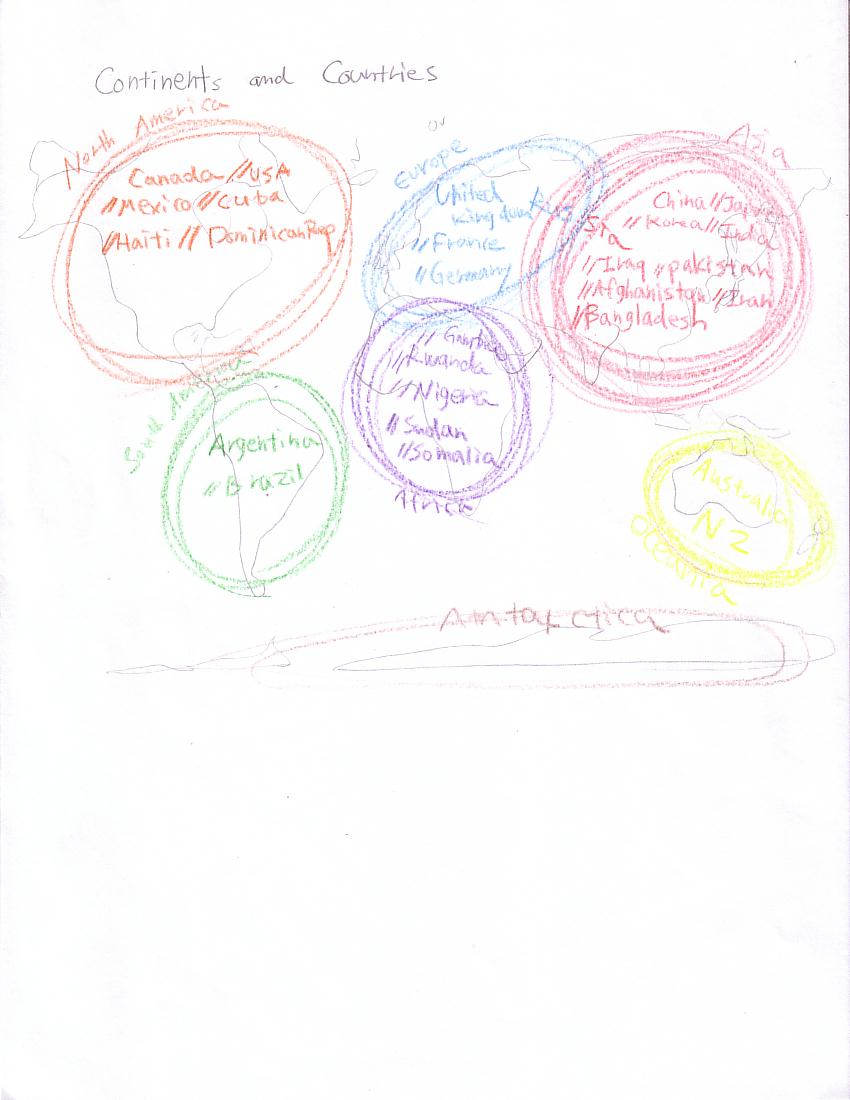 Continents and Countries
North America
Canada //USA
//Mexico//Cuba
//Haiti // DominicanRep
Europe
United
Kingdom
//France
//Germany
Rus
sia
Asia
China//Japan
//Korea//India
//Iraq //pakistan
//Afghanistan//Iran
//Bangladesh
South America
Argentina
//Brazil
//Rwanda
//Nigeria
//Sudan
//Somalia
Africa
Australia
NZ
Oceania
Antarctica